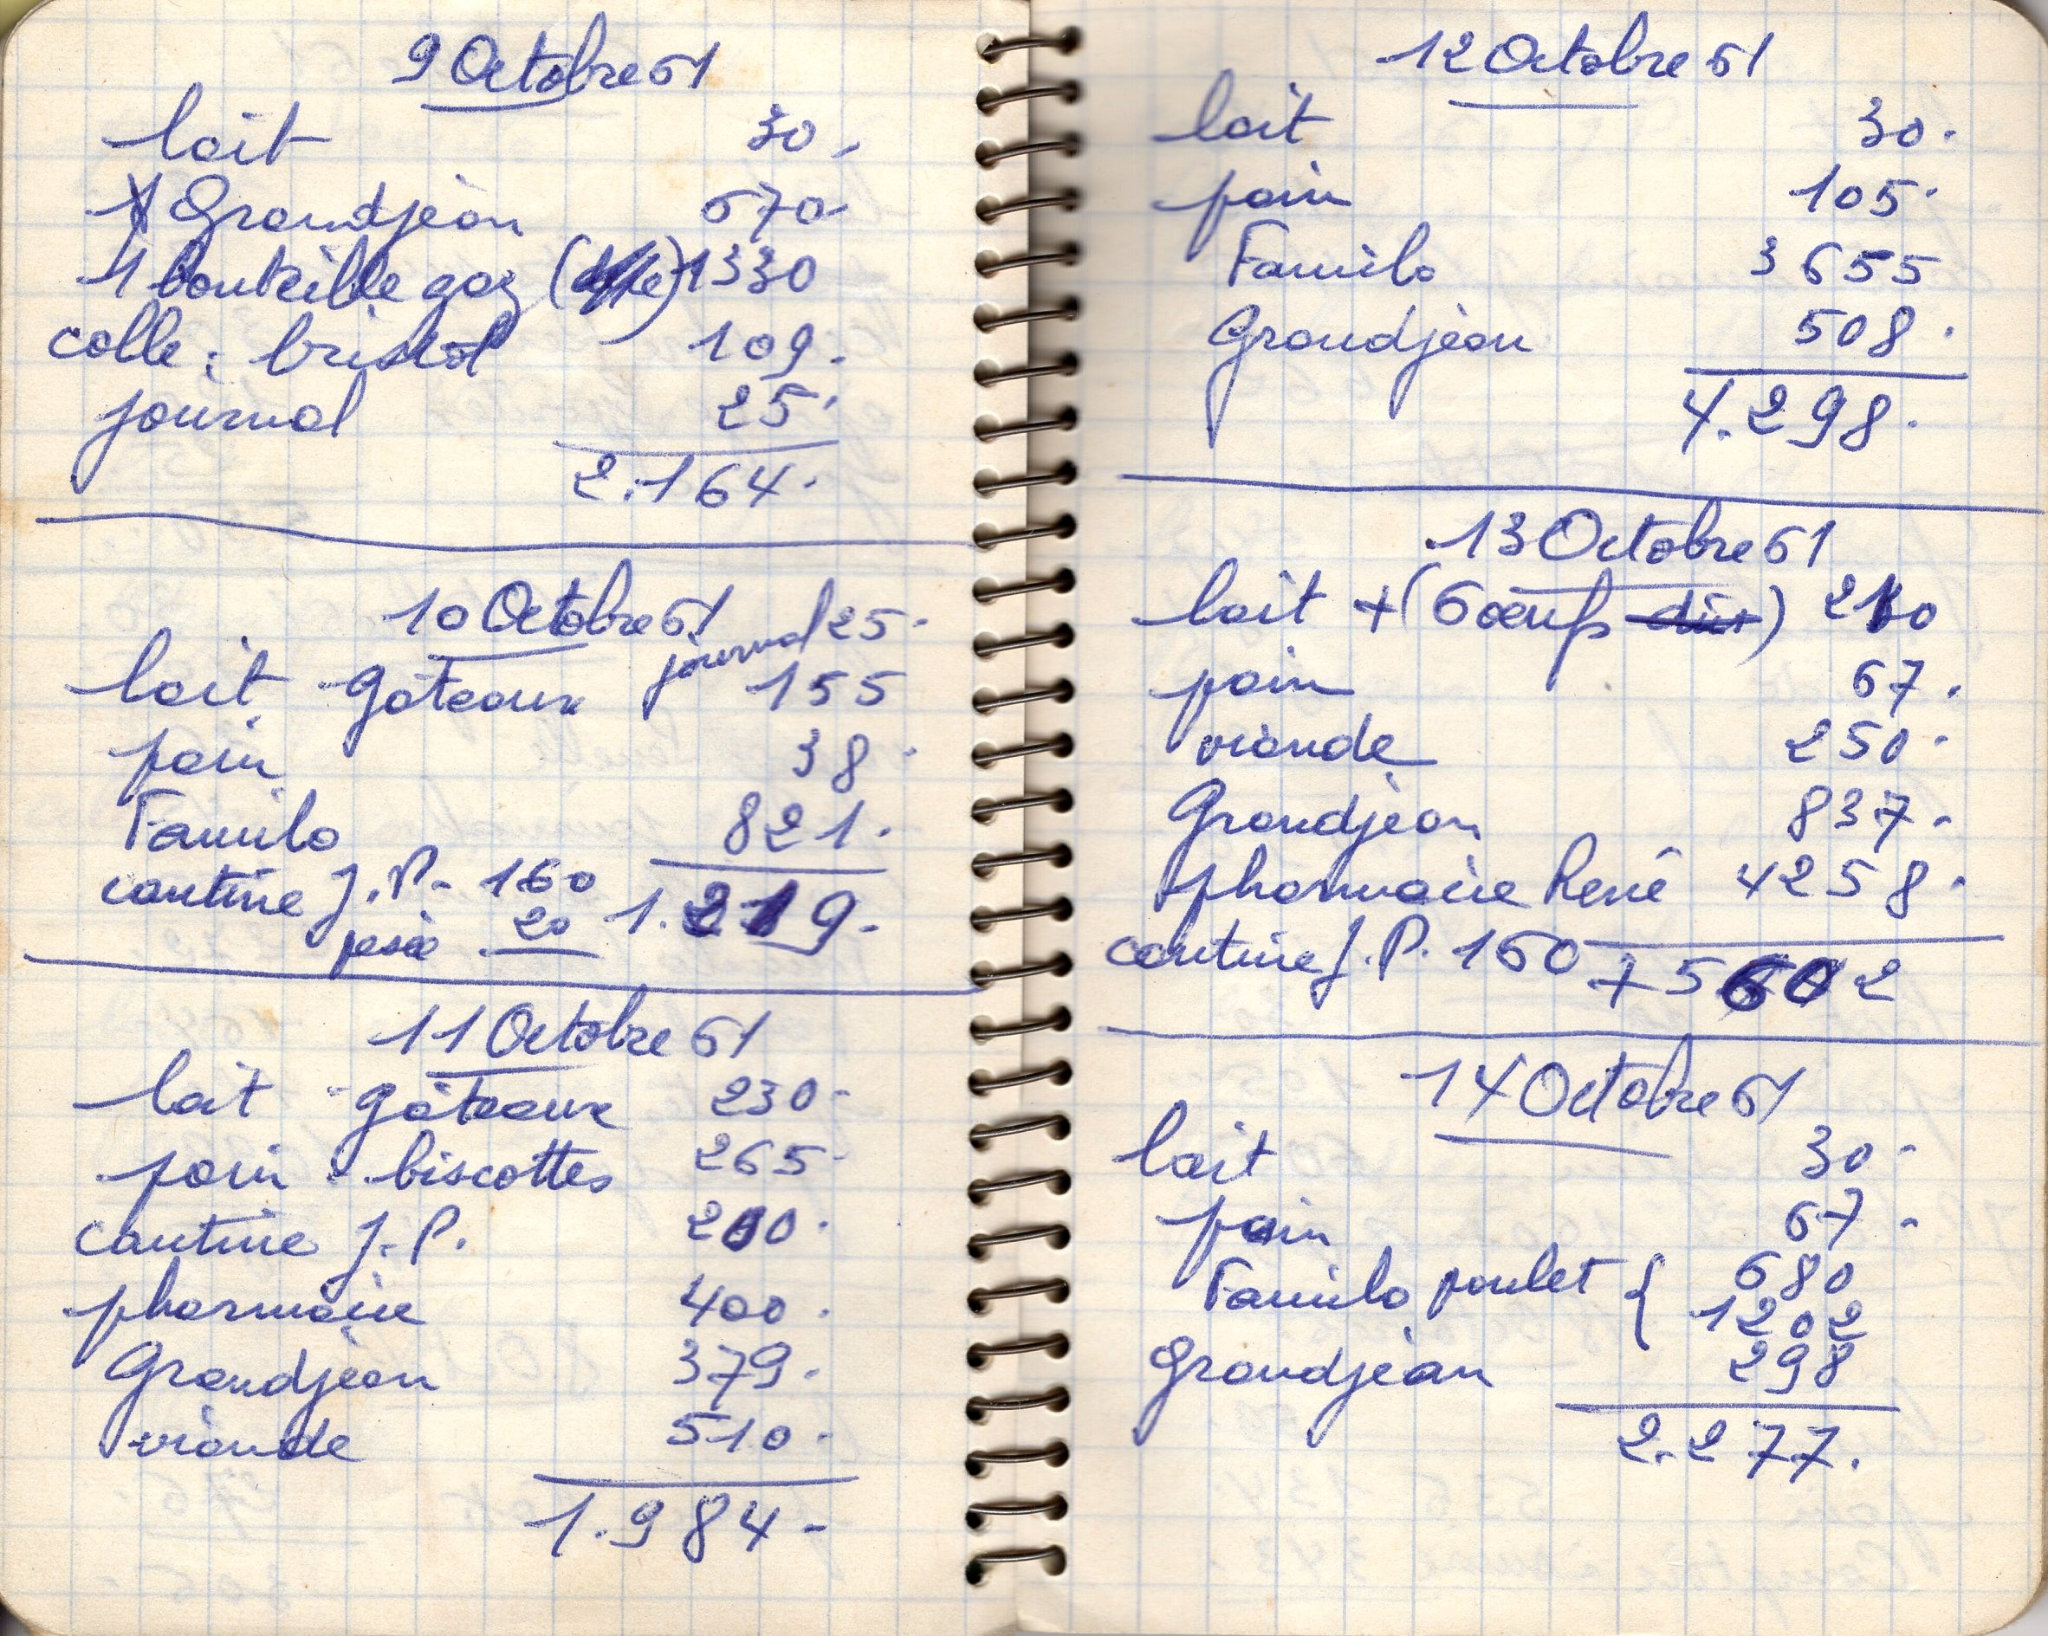 9 Octobre 61
lait 30.
Grandjean 670
1 bouteille gaz 1330
colle, bristol 109.
journal 25.
2.164.
10 Octobre 61
journal 25.
lait gâteaux 155
pain 38.
Familo 821.
cantine J.P. 160
20 1.219.
11 Octobre 61
lait gâteaux 230
pain biscottes 265
cantine J.P. 200.
pharmacie 400.
Grandjean 379.
viande 510.
1.984.
12 Octobre 61
lait 30.
pain 105.
Familo 3655
Grandjean 508.
4.298.
13 Octobre 61
lait + (6 oeufs) 210
pain 67.
viande 250.
Grandjean 837.
pharmacie René 4258.
cantine J.P. 160 + 5602
14 Octobre 61
lait 30
pain 67
Familo poulet { 680
1202
Grandjean 298
2.277.